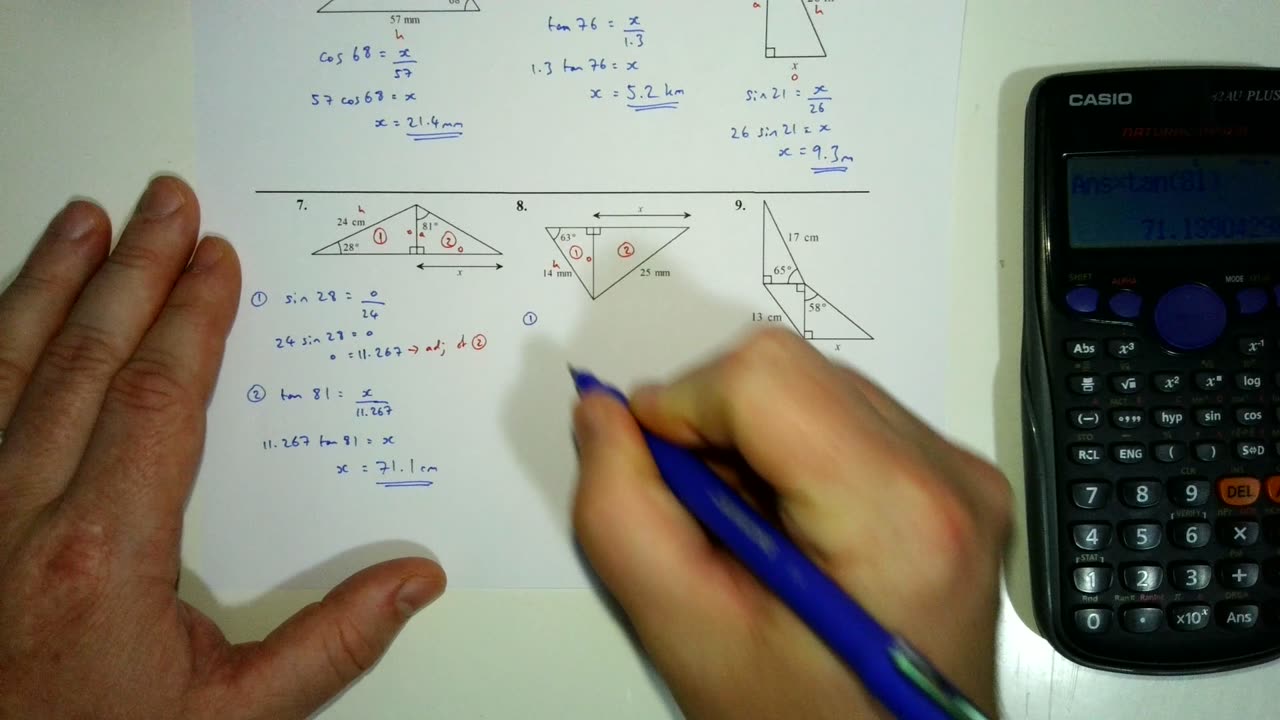 57 mm
h
cos 68 = x/57
57 cos 68 = x
x = 21.4 mm
tan 76 = x/1.3
1.3 tan 76 = x
x = 5.2 km
a
h
x
o
sin 21 = x/26
26 sin 21 = x
x = 9.3m
7.
24 cm
h
28°
①
o
a
81°
②
o
x
① sin 28 = o/24
24 sin 28 = o
o = 11.267 → adj of ②
② tan 81 = x/11.267
11.267 tan 81 = x
x = 71.1 cm
8.
x
63°
①
o
②
h
14 mm
25 mm
①
9.
17 cm
65°
58°
13 cm
x
CASIO
82AU PLUS
Ans×tan(81)
SHIFT
ALPHA
MODE
Abs
x³
x⁻¹
x²
log
(−)
hyp
sin
cos
STO
RCL
ENG
(
)
S⇔D
CLR
INS
7
8
9
DEL
VERIFY
4
5
6
×
STAT
1
2
3
+
Rnd
Ran# RanInt
π
e
DRG▸
0
·
×10ˣ
Ans